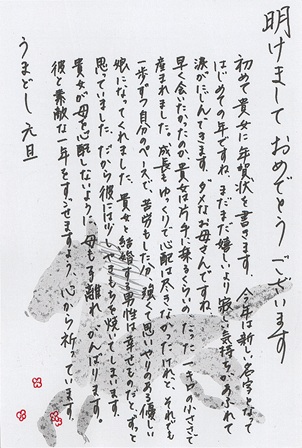 明けまして おめでとう ございます
初めて貴女に年賀状を書きます。今年は新しい名字となって
はじめての年ですね。まだまだ嬉しいより寂しい気持ちへあふれて
涙がにじんできます。ダメなお母さんですね。
早く会いたかったのか貴女は片手に乗るくらいのたった一キロの小ささで
産まれました。成長もゆっくりで心配は尽きなかったけれど、それでも
一歩ずつ自分のペースで、苦労をした分、強くて思いやりのある優しい
娘になってくれました。貴女と結婚する男性は幸せものだと、ずっと
思ってました。だから彼には少しやきもちを焼いてしまいます。
貴女が母を心配しないように、母も子離れ、がんばります。
彼と素敵な一年をすごせますよう、心から祈っています。
うまどし 元旦